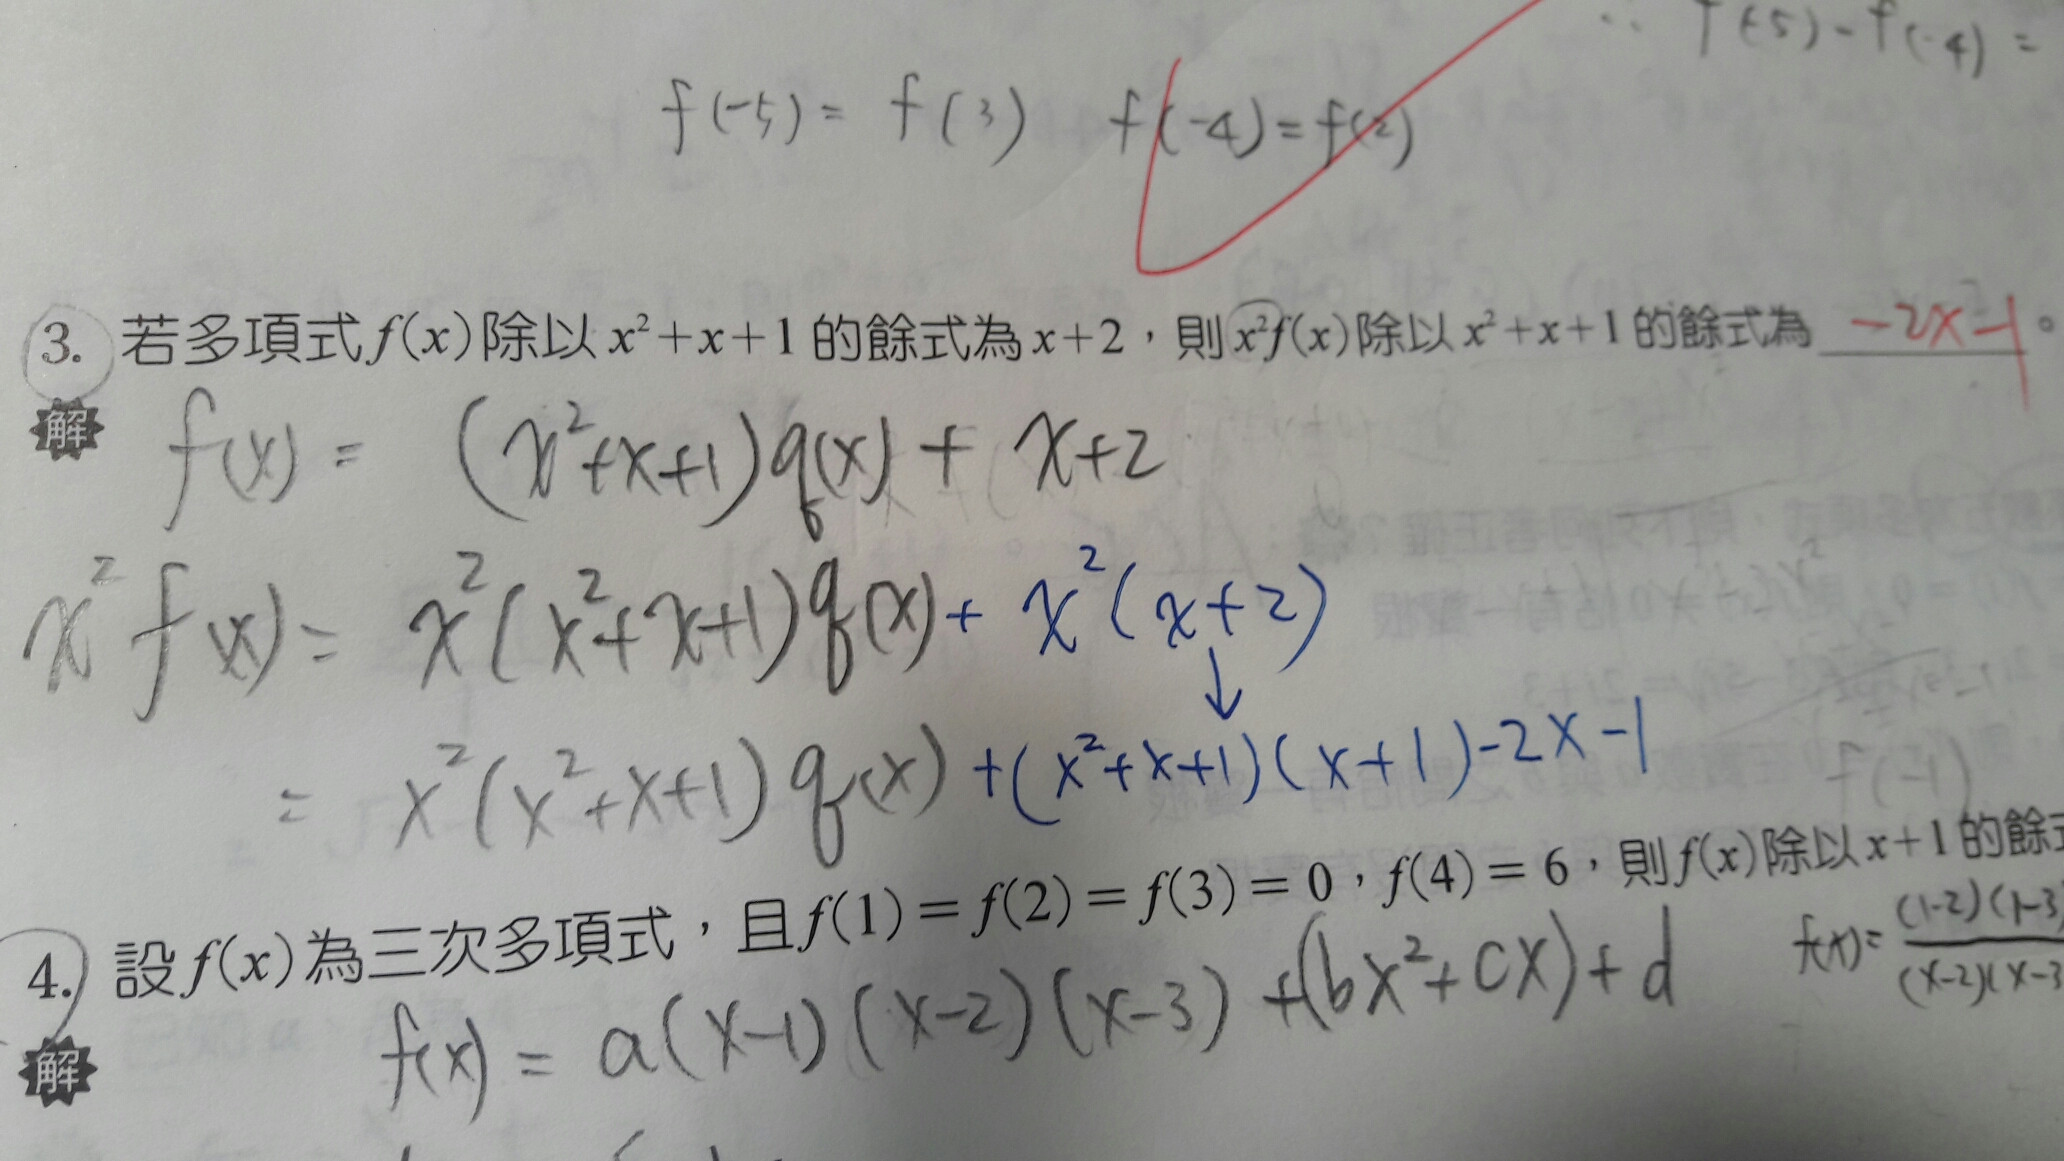 ∴ f(-5) - f(-4) =
f(-5) = f(3) f(-4) = f(2)
3. 若多項式f(x)除以x²+x+1的餘式為x+2，則x²f(x)除以x²+x+1的餘式為 -2x-1 。
解 f(x) = (x²+x+1)q(x) + x+2
x² f(x) = x²(x²+x+1)q(x) + x²(x+2)
↓
= x²(x²+x+1)q(x) + (x²+x+1)(x+1)-2x-1
f(-1)
4. 設f(x)為三次多項式，且f(1)=f(2)=f(3)=0，f(4)=6，則f(x)除以x+1的餘
解 f(x) = a(x-1)(x-2)(x-3) + (bx²+cx)+d
f(x)= (1-2)(1-3)
(x-2)(x-3